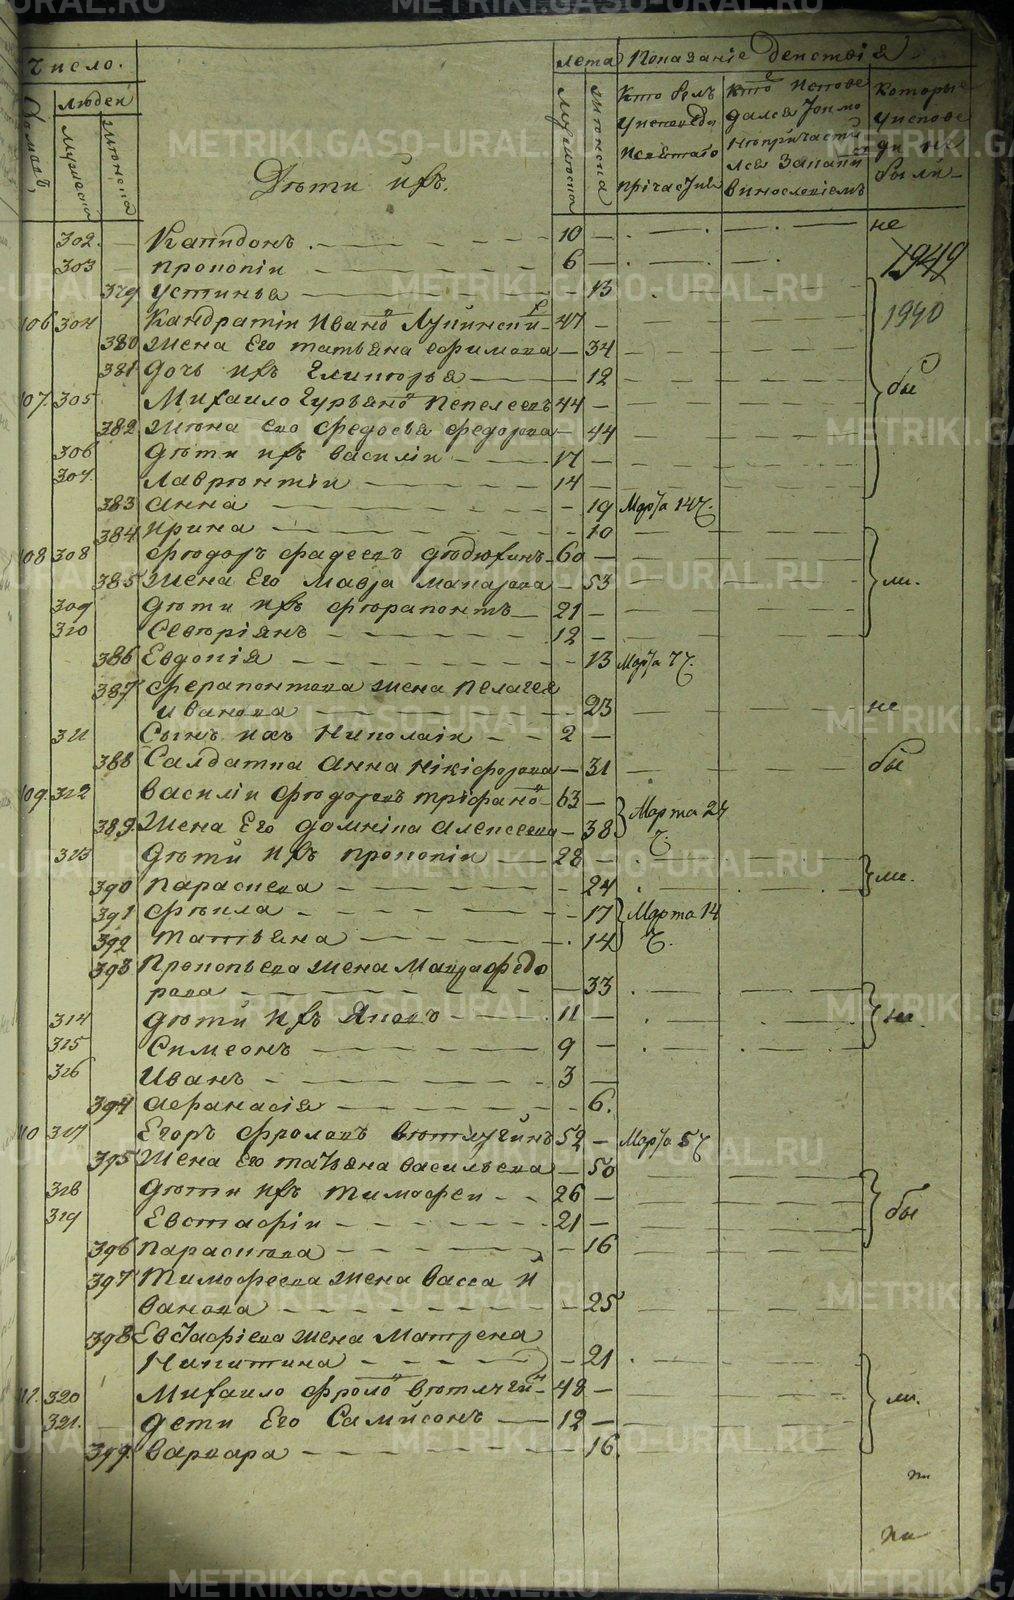 Число. лета Показаніе действія
люден
Домовъ мужеска женска мужеска женска
Кто былъ у исповеди и святаго причастія
кто исповедался токмо не причастился За какимъ винословіемъ
Которые у исповеди не были
Дѣти ихъ.
302. — Капидонъ 10 — не
303 — прокопіи 6 — 1949
379 устинья 13
106 304 Кандратіи Ивано Лупински 47 — 1940
380 жена Его татьяна ефимова — 34
381 дочь ихъ Гликерья — 12
107. 305 Михаило Гурьяно пепелевъ 44 — бы
382 жена ево федосья федорова — 44
306 дѣти ихъ василіи 17 —
307. лаврентіи 14 —
383 анна — 19 Марта 14 Ч.
384 ирина — 10
108 308 федоръ фадеевъ дедюхинъ 60 —
385 жена Его мавра макарова — 53 ли.
309 дѣти ихъ ферапонтъ 21 —
310 Северіянъ 12 —
386 Евдокія — 13 Марта 7 Ч.
387 ферапонтова жена пелагея
иванова — 23 не
311 Сынъ ихъ николаи 2 —
388 Салдатка анна нікіфорова — 31 бы
109. 312 василіи федоровъ тріфано 63 — Марта 27
389 жена Его домніка алексеева — 38 Ч.
313 дѣти ихъ прокопіи 28 —
390 параскева — 24 ли.
391 фѣкла — 17 Марта 14
392 татьяна — 14 Ч.
393 прокопьева жена Мавра федо
рова — 33
314 дѣти ихъ Яковъ 11 — не.
315 Симеонъ 9 —
316 Иванъ 3 —
394 афанасія — 6.
110 317 Егоръ фроловъ ветлугинъ 52 — Марта 5 Ч
395 жена Его татьяна васильева — 50
318 дѣти ихъ тимофеи 26 —
319 Евстафіи 21 — бы
396 параскева — 16
397 тимофеева жена васса и
ванова — 25
398 Евстафіева жена матрена
никитина — 21
111. 320 михаило фроло ветлуги 48 — ли.
321. дети Его Самйсонъ 12 —
399. варвара — 16.